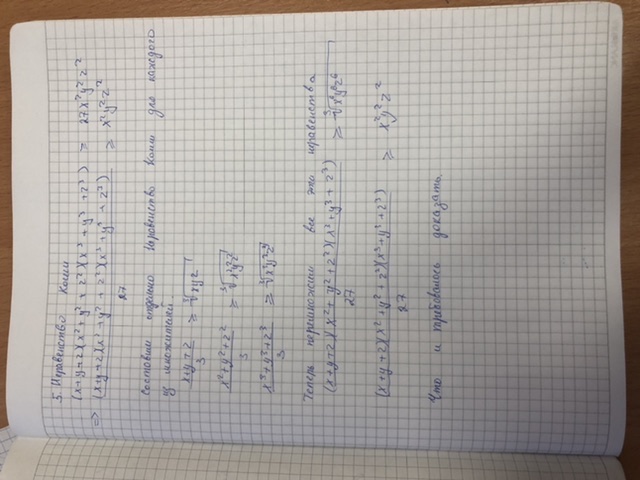 5. Неравенство Коши
(x+y+z)(x²+y²+z²)(x³+y³+z³) ≥ 27x²y²z²
=> (x+y+z)(x²+y²+z²)(x³+y³+z³) / 27 ≥ x²y²z²
Составим отдельно неравенство Коши для каждого
из множителей
x+y+z / 3 ≥ ³√xyz
x²+y²+z² / 3 ≥ ³√x²y²z²
x³+y³+z³ / 3 ≥ ³√x³y³z³
Теперь перемножим все это неравенства
(x+y+z)(x²+y²+z²)(x³+y³+z³) / 27 ≥ ³√x⁶y⁶z⁶
(x+y+z)(x²+y²+z²)(x³+y³+z³) / 27 ≥ x²y²z²
Что и требовалось доказать.